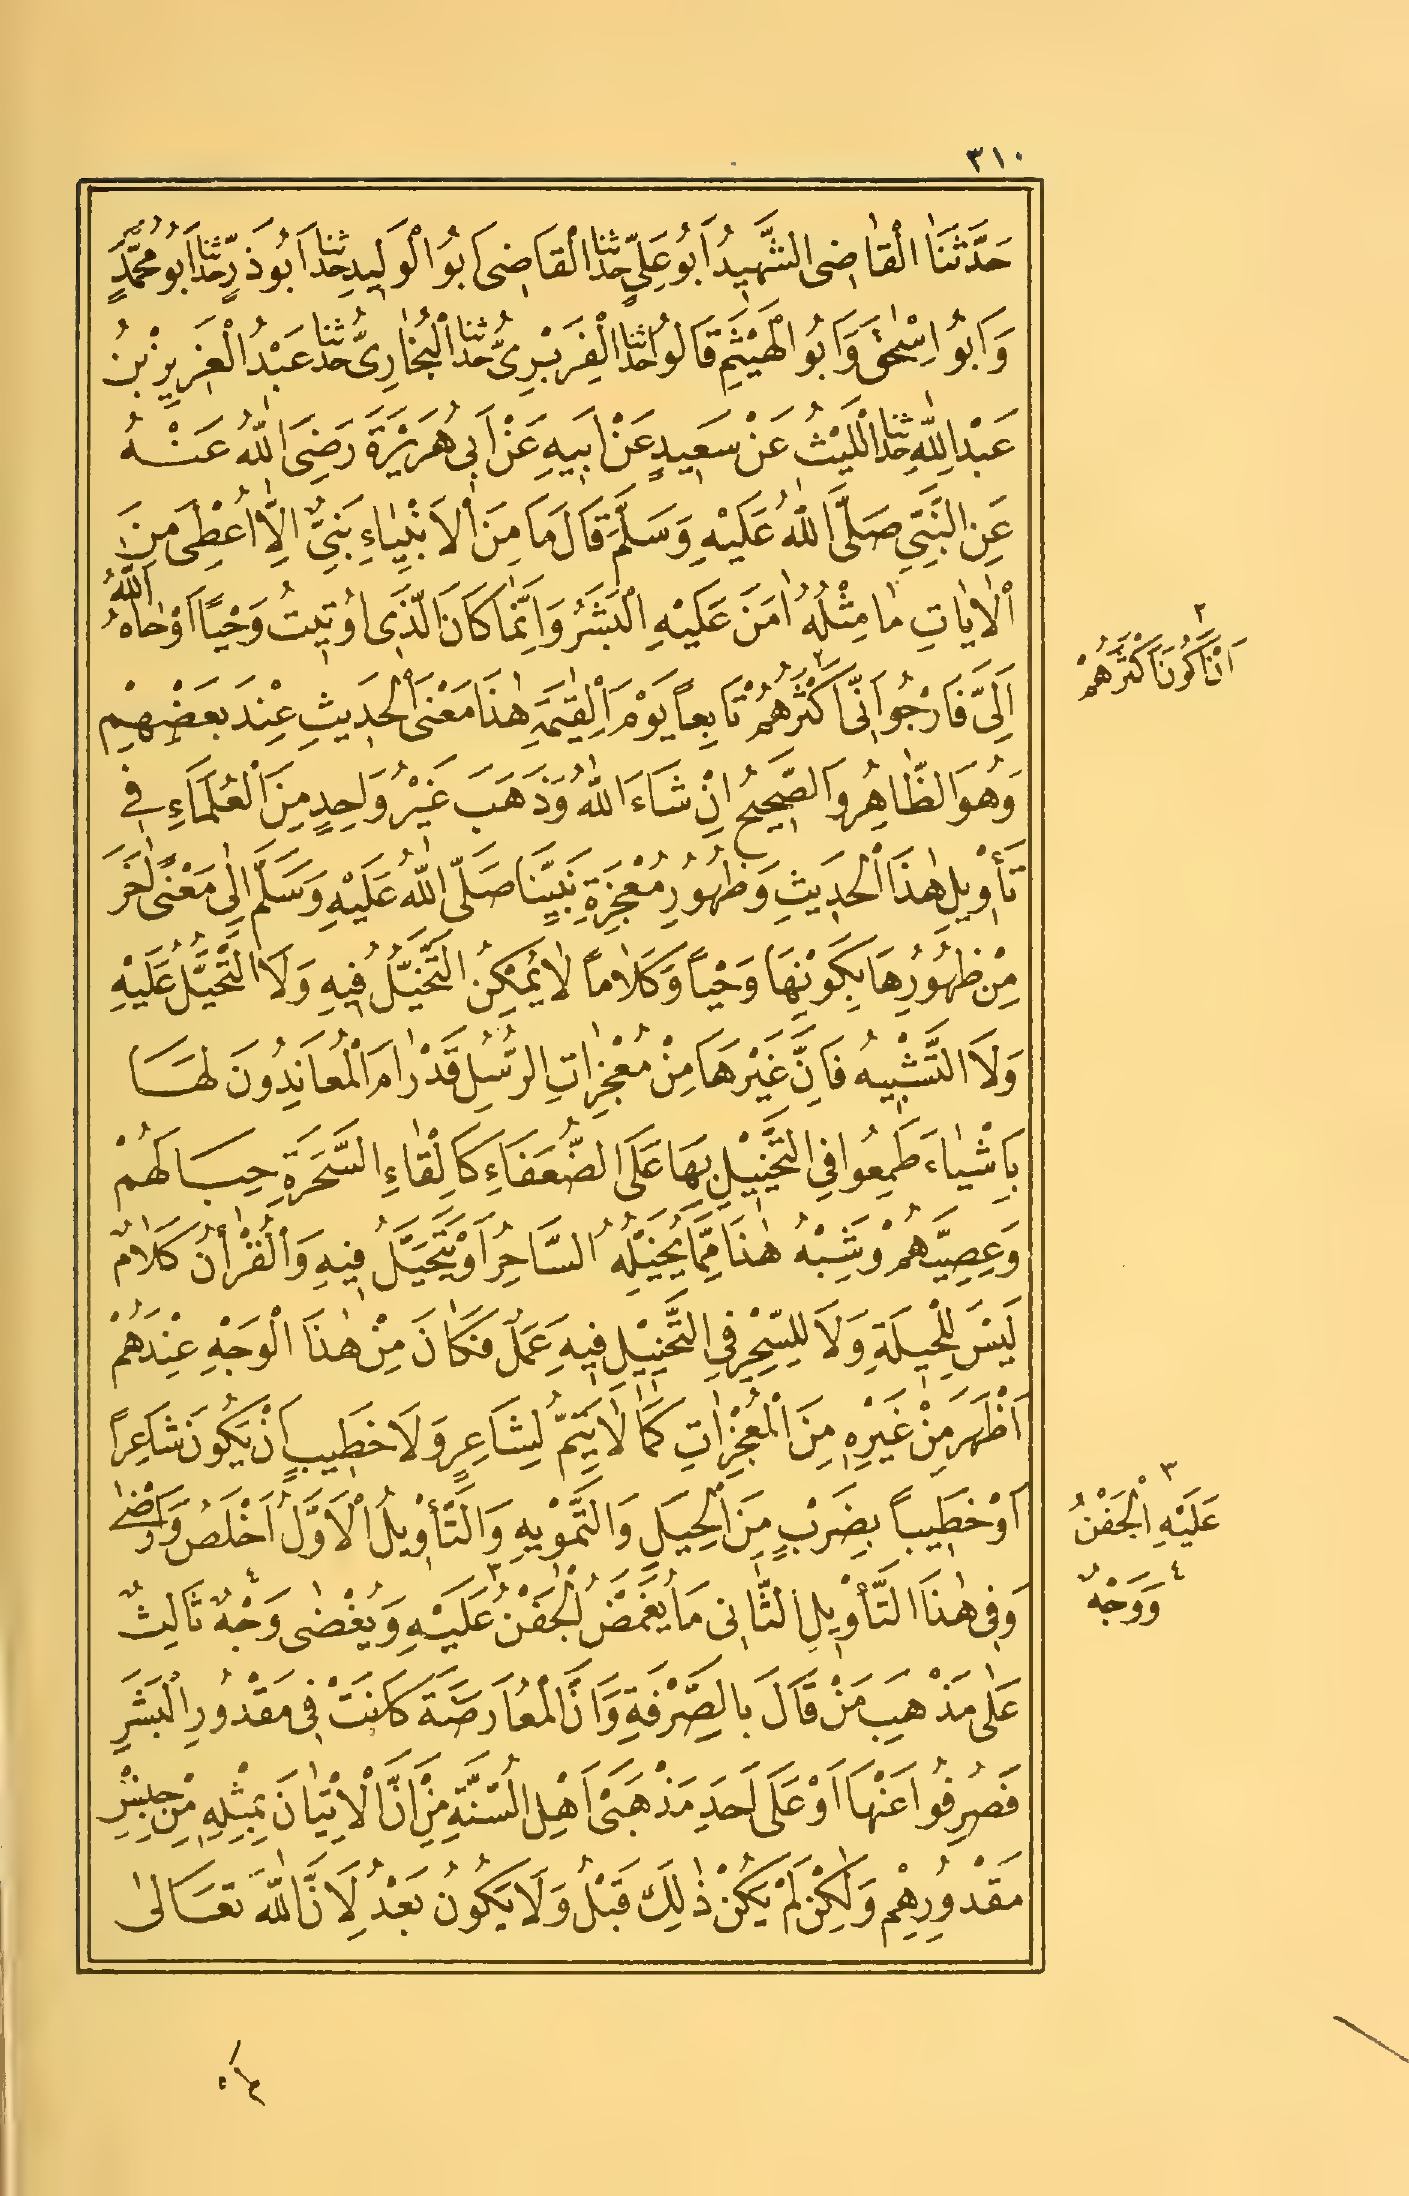 ٣١٠
حَدَّثَنَا الْقَاضِى الشَّهِيدُ اَبُو عَلِيٍّ حدثنا الْقَاضِى اَبُو الْوَلِيدِ حدثنا اَبُو ذَرٍّ حدثنا اَبُو مُحَمَّدٍ
وَاَبُو اِسْحٰقَ وَاَبُو الْهَيْثَمِ قَالُوا حدثنا الْفِرَبْرِىُّ حدثنا الْبُخَارِىُّ حدثنا عَبْدُ الْعَزِيزِ بْنُ
عَبْدِ اللّٰهِ حدثنا اللَّيْثُ عَنْ سَعِيدٍ عَنْ اَبِيهِ عَنْ اَبِى هُرَيْرَةَ رَضِىَ اللّٰهُ عَنْهُ
عَنِ النَّبِيِّ صَلَّى اللّٰهُ عَلَيْهِ وَسَلَّمَ قَالَ مَا مِنَ الْاَنْبِيَاءِ نَبِىٌّ اِلَّا اُعْطِىَ مِنَ
الْاٰيَاتِ مَا مِثْلُهُ اٰمَنَ عَلَيْهِ الْبَشَرُ وَاِنَّمَا كَانَ الَّذِى اُوتِيتُ وَحْيًا اَوْحَاهُ اللّٰهُ
اِلَىَّ فَاَرْجُو اَنِّى اَكْثَرُهُمْ ٢ تَابِعاً يَوْمَ الْقِيٰمَةِ هٰذَا مَعْنَى الْحَدِيثِ عِنْدَ بَعْضِهِمْ
وَهُوَ الظَّاهِرُ وَالصَّحِيحُ اِنْ شَاءَ اللّٰهُ وَذَهَبَ غَيْرُ وَاحِدٍ مِنَ الْعُلَمَاءِ فِى
تَأْوِيلِ هٰذَا الْحَدِيثِ وَظُهُورِ مُعْجِزَةِ نَبِيِّنَا صَلَّى اللّٰهُ عَلَيْهِ وَسَلَّمَ اِلٰى مَعْنًى اٰخَرَ
مِنْ ظُهُورِهَا بِكَوْنِهَا وَحْياً وَكَلَاماً لَا يُمْكِنُ التَّخَيُّلُ فِيهِ وَلَا التَّحَيُّلُ عَلَيْهِ
وَلَا التَّشْبِيهُ فَاِنَّ غَيْرَهَا مِنْ مُعْجِزَاتِ الرُّسُلِ قَدْ رَامَ الْمُعَانِدُونَ لَهَا
بِاَشْيَاءَ طَمِعُوا فِى التَّخْيِيلِ بِهَا عَلَى الضُّعَفَاءِ كَاِلْقَاءِ السَّحَرَةِ حِبَالَهُمْ
وَعِصِيَّهُمْ وَشِبْهُ هٰذَا مِمَّا يُخَيِّلُهُ السَّاحِرُ اَوْ يَتَحَيَّلُ فِيهِ وَالْقُرْاٰنُ كَلَامٌ
لَيْسَ لِلْحِيلَةِ وَلَا لِلسِّحْرِ فِى التَّخْيِيلِ فِيهِ عَمَلٌ فَكَانَ مِنْ هٰذَا الْوَجْهِ عِنْدَهُمْ
اَظْهَرَ مِنْ غَيْرِهِ مِنَ الْمُعْجِزَاتِ كَمَا لَا يَتِمُّ لِشَاعِرٍ وَلَا خَطِيبٍ اَنْ يَكُونَ شَاعِراً
اَوْ خَطِيباً بِضَرْبٍ مِنَ الْحِيَلِ وَالتَّمْوِيهِ وَالتَّأْوِيلُ الْاَوَّلُ اَخْلَصُ وَاَرْضٰى
وَفِى هٰذَا التَّأْوِيلِ الثَّانِى مَا يُغَمَّضُ الْجَفْنُ عَلَيْهِ ٣ وَيُغْضٰى وَجْهٌ ٤ ثَالِثٌ
عَلٰى مَذْهَبِ مَنْ قَالَ بِالصَّرْفَةِ وَاَنَّ الْمُعَارَضَةَ كَانَتْ فِى مَقْدُورِ الْبَشَرِ
فَصُرِفُوا عَنْهَا اَوْ عَلَى اَحَدِ مَذْهَبَىْ اَهْلِ السُّنَّةِ مِنْ اَنَّ الْاِتْيَانَ بِمِثْلِهِ مِنْ جِنْسِ
مَقْدُورِهِمْ وَلٰكِنْ لَمْ يَكُنْ ذٰلِكَ قَبْلُ وَلَا يَكُونُ بَعْدُ لِاَنَّ اللّٰهَ تَعَالٰى
٢
اَنْ اَكُونَ اَكْثَرَهُمْ
٣
عَلَيْهِ الْجَفْنُ
٤
وَوَجْهٌ